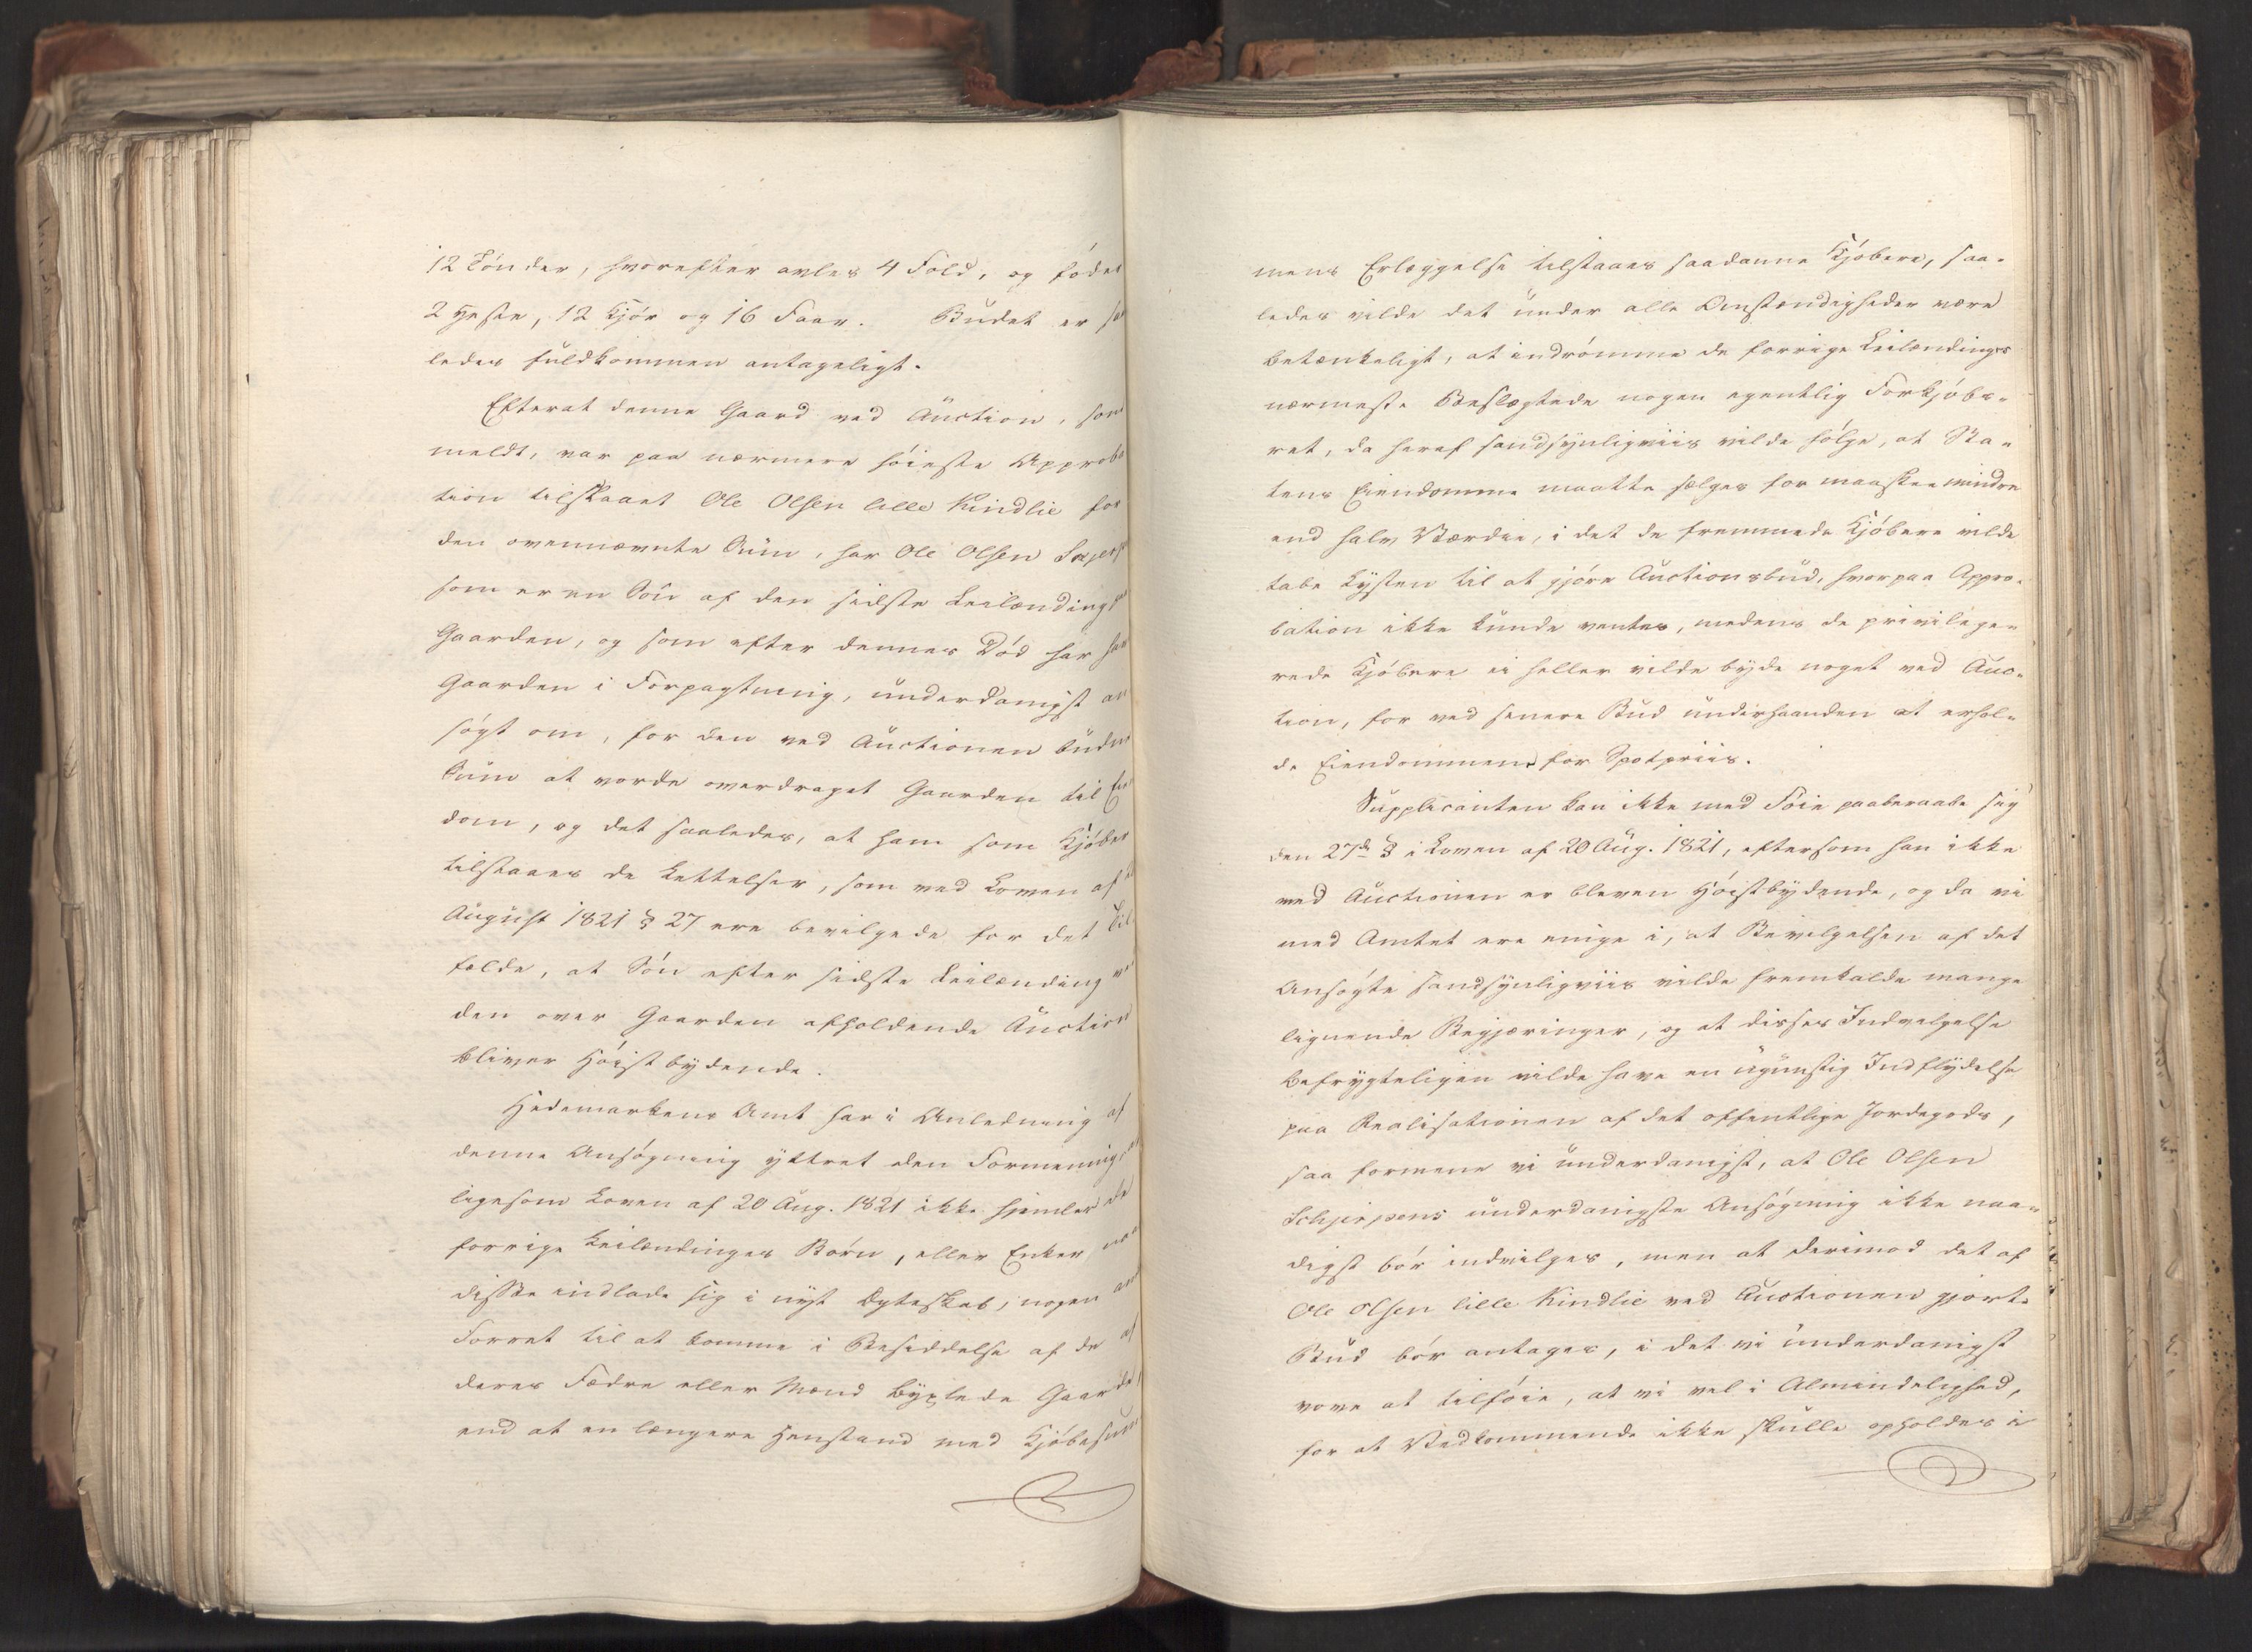 12 Tønder, hvorefter avles 4 Fold, og fødes
2 Heste, 12 Kjør og 16 Faar. Budet er saa
ledes fuldkommen antageligt.
Efterat denne Gaard ved Auction, som
meldt, var paa nærmere høieste Approba
tion tilslaaet Ole Olsen lille Kindlie for
den ovennævnte Sum, har Ole Olsen
som er en Søn af den sidste Leilænding paa
Gaarden, og som efter dennes Død har havt
Gaarden i Forpagtning, underdanigst an
søgt om, for den ved Auctionen budne
Sum at vorde overdraget Gaarden til Eien
dom, og det saaledes, at ham som Kjøber
tilstaaes de Lettelser, som ved Loven af 20
August 1821 § 27 ere bevilgede for det Til
fælde, at Søn efter sidste Leilænding ved
den over Gaarden afholdende Auction
bliver Høistbydende.
Hedemarkens Amt har i Anledning af
denne Ansøgning yttret den Formening, at
ligesom Loven af 20 Aug. 1821 ikke hjemler de
forrige Leilændinges Børn, eller Enker, naar
disse indlade sig i nyt Ægteskab, nogen anden
Forret til at komme i Besiddelse af de af
deres Fædre eller Mænd byxlede Gaarde,
end at en længere Henstand med Kjøbesum
mens Erlæggelse tilstaaes saadanne Kjøbere, saa-
ledes vilde det under alle Omstændigheder være
betænkeligt, at indrømme de forrige Leilændinges
nærmeste Beslægtede nogen egentlig Forkjøbs-
ret, da heraf sandsynligviis vilde følge, at Sta-
tens Eiendomme maatte sælges for maaskee mindre
end halv Værdie, i det de fremmede Kjøbere vilde
tabe Lysten til at gjøre Auctionsbud, hvorpaa Appro-
bation ikke kunde ventes, medens de privilege-
rede Kjøbere ei heller vilde byde noget ved Auc-
tion, for ved senere Bud underhaanden at erhol-
de Eiendommen for Spotpriis.
Supplicanten kan ikke med Føie paaberaabe sig
den 27de § i Loven af 20 Aug. 1821, eftersom han ikke
ved Auctionen er bleven Høistbydende, og da vi
med Amtet ere enige i, at Bevilgelsen af det
Ansøgte sandsynligviis vilde fremkalde mange
lignende Begjæringer, og at disses Indvilgelse
befrygteligen vilde have en ugunstig Indflydelse
paa Realisationen af det offentlige Jordegods,
saa formene vi underdanigst, at Ole Olsen
Schjerpens underdanigste Ansøgning ikke naa-
digst bør indvilges, men at derimod det af
Ole Olsen lille Kindlie ved Auctionen gjorte
Bud bør antages, i det vi underdanigst
vove at tilføie, at vi vel i Almindelighed,
for at Vedkommende ikke skulle opholdes i